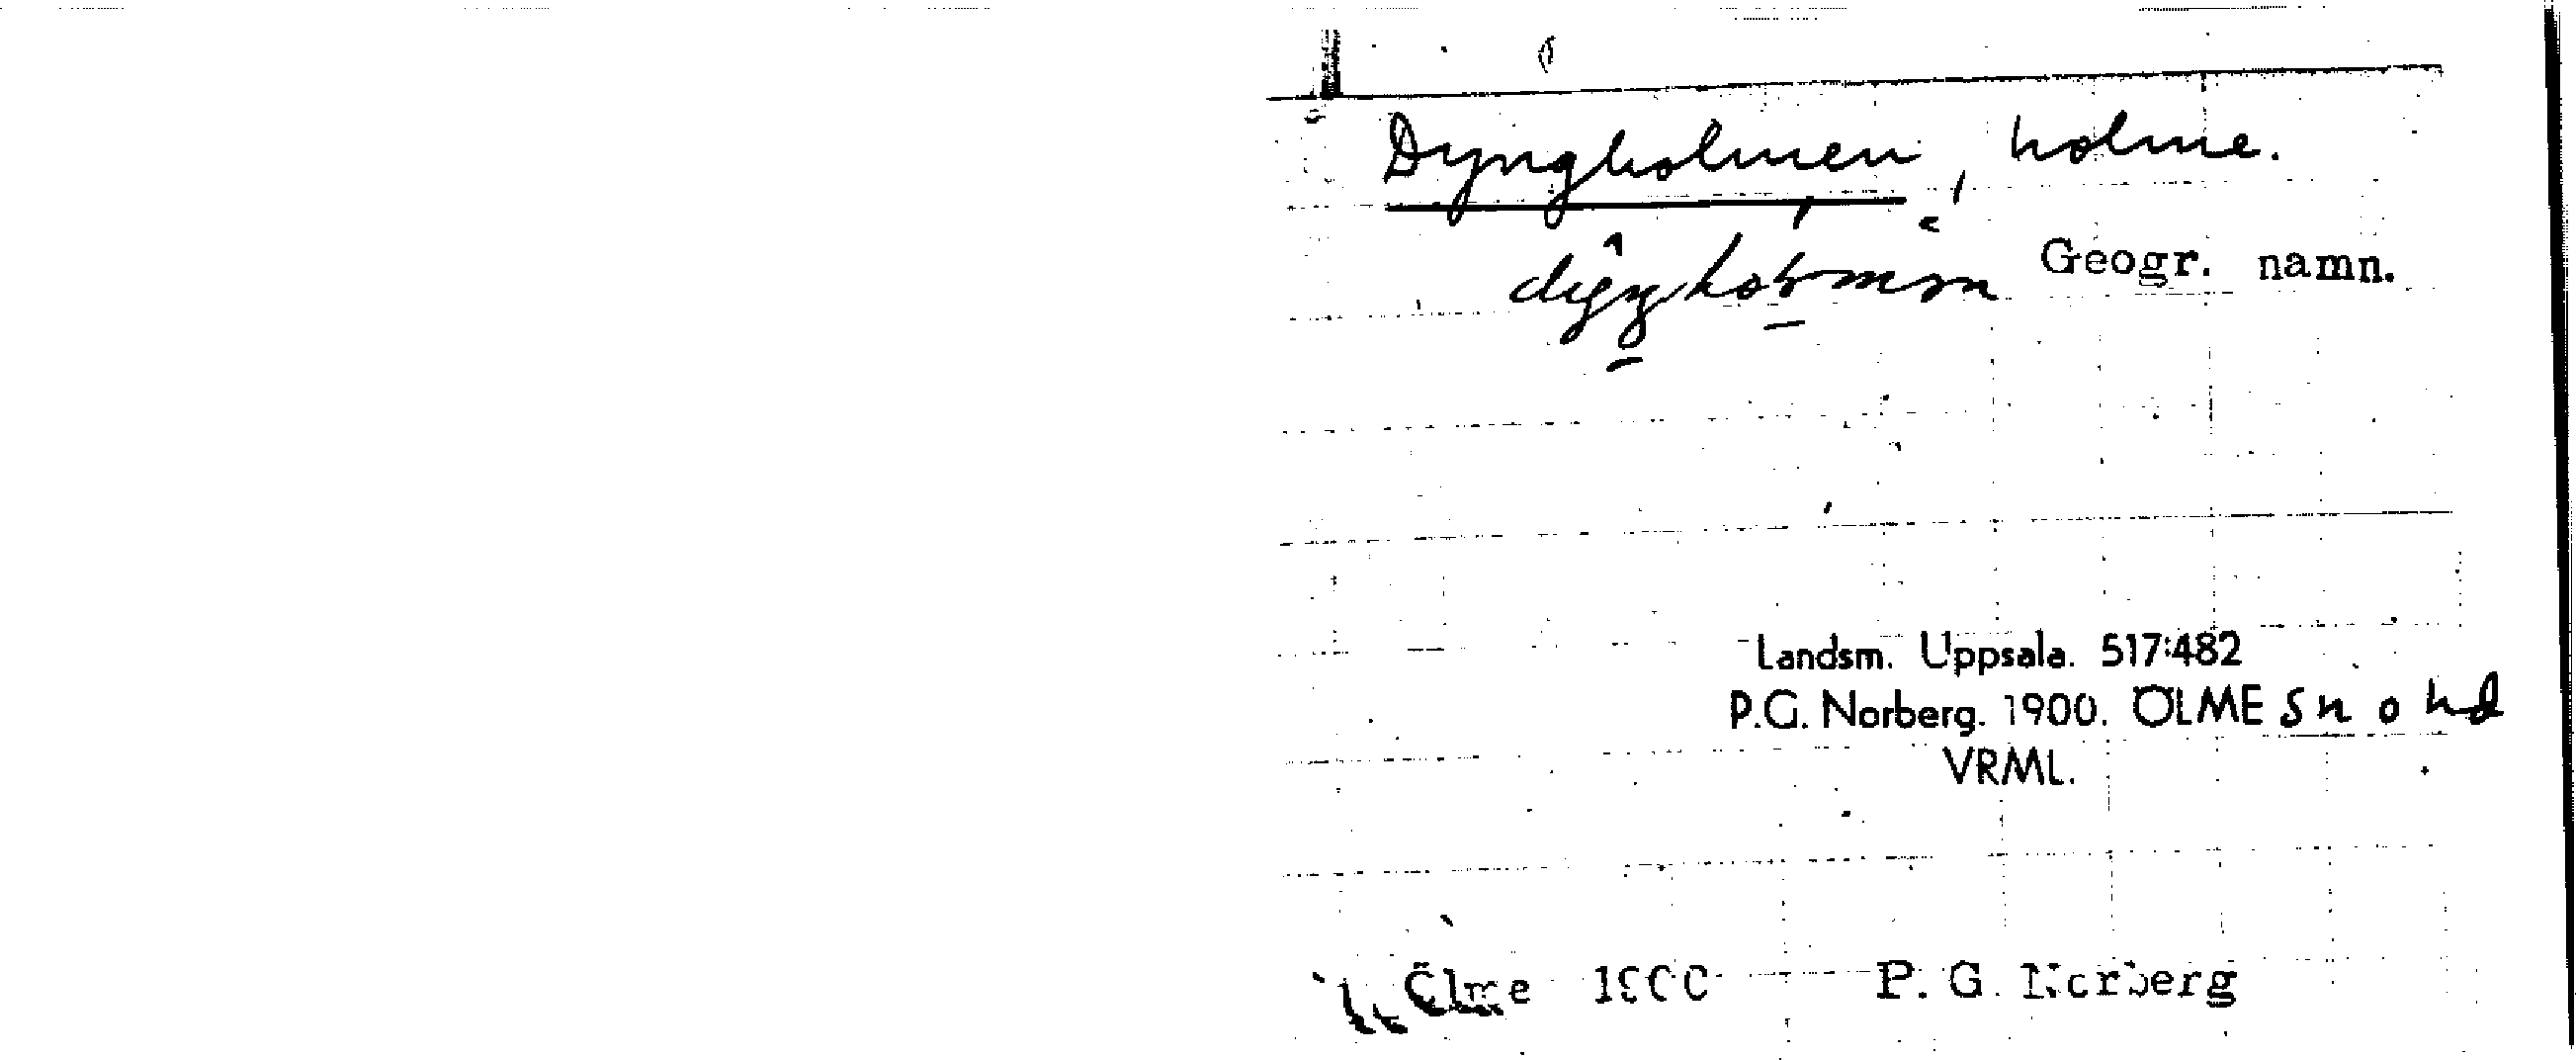 Dyngholmen, holme.
Geogr. namn.
Landsm. Uppsala. 517:482
P.G. Norberg. 1900. ÖLME sn o hd
VRML.
Ölme 1900 P. G. Norberg